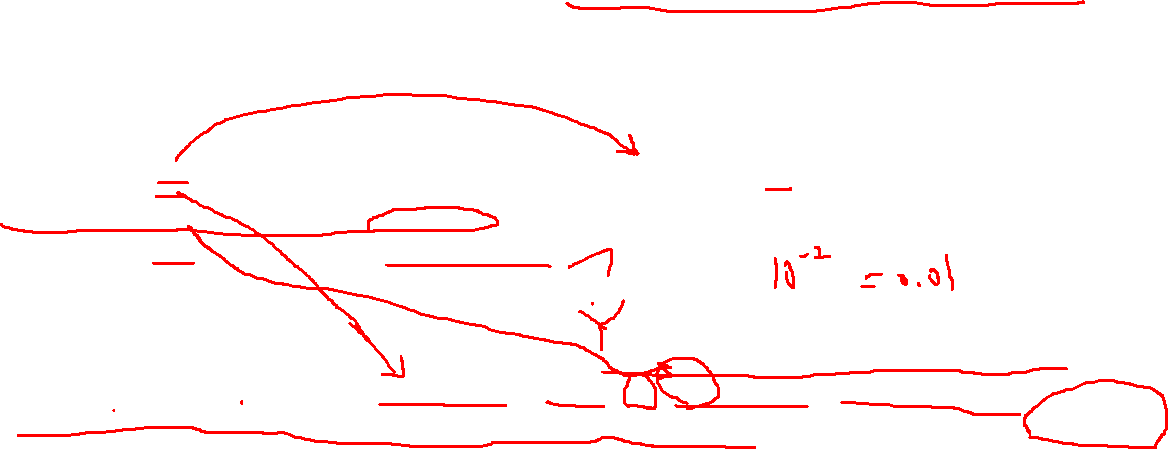 10⁻² = 0.01